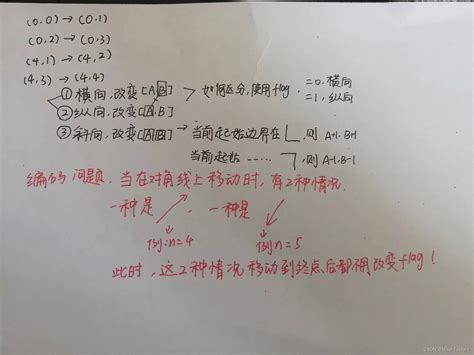 (0,0)→(0,1)
(0,2)→(0,3)
(4,1)→(4,2)
(4,3)→(4,4)
①横向,改变[A,B] 如何区分,使用flag. =0,横向
②纵向,改变[A,B] =1,纵向
③斜向,改变[A,B]→当前起始边界在 ,则 A+1.B+1
当前起始 ...... ,则 A-1.B-1
编码问题. 当在对角线上移动时,有2种情况
一种是 . 一种是
例:n=4 例n=5
此时,这2种情况移动到终点后都用改变flag!